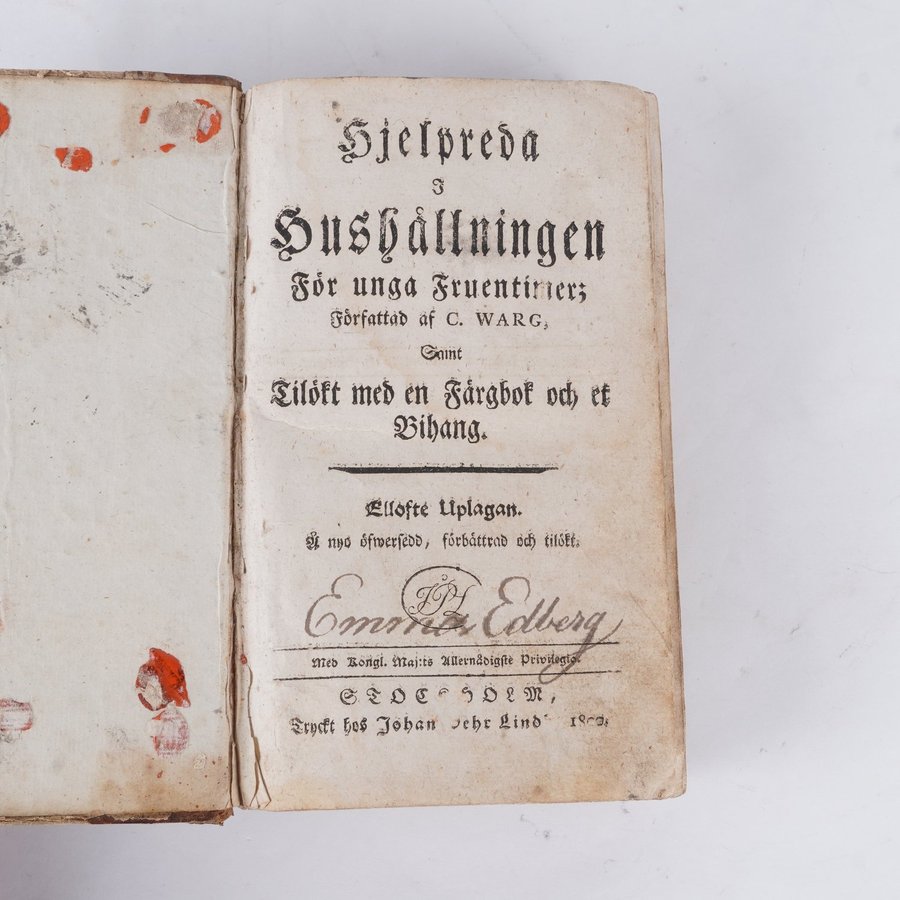 Hjelpreda
I
Hushållningen
För unga Fruentimer;
Författad af C. WARG,
Samt
Tilökt med en Färgbok och et
Bihang.
Ellofte Uplagan.
Å nyo öfwersedd, förbättrad och tilökt.
JPL
Emma Edberg
Med Kongl. Maj:ts Allernådigste Privilegio.
STOCKHOLM,
Tryckt hos Johan Pehr Lindh